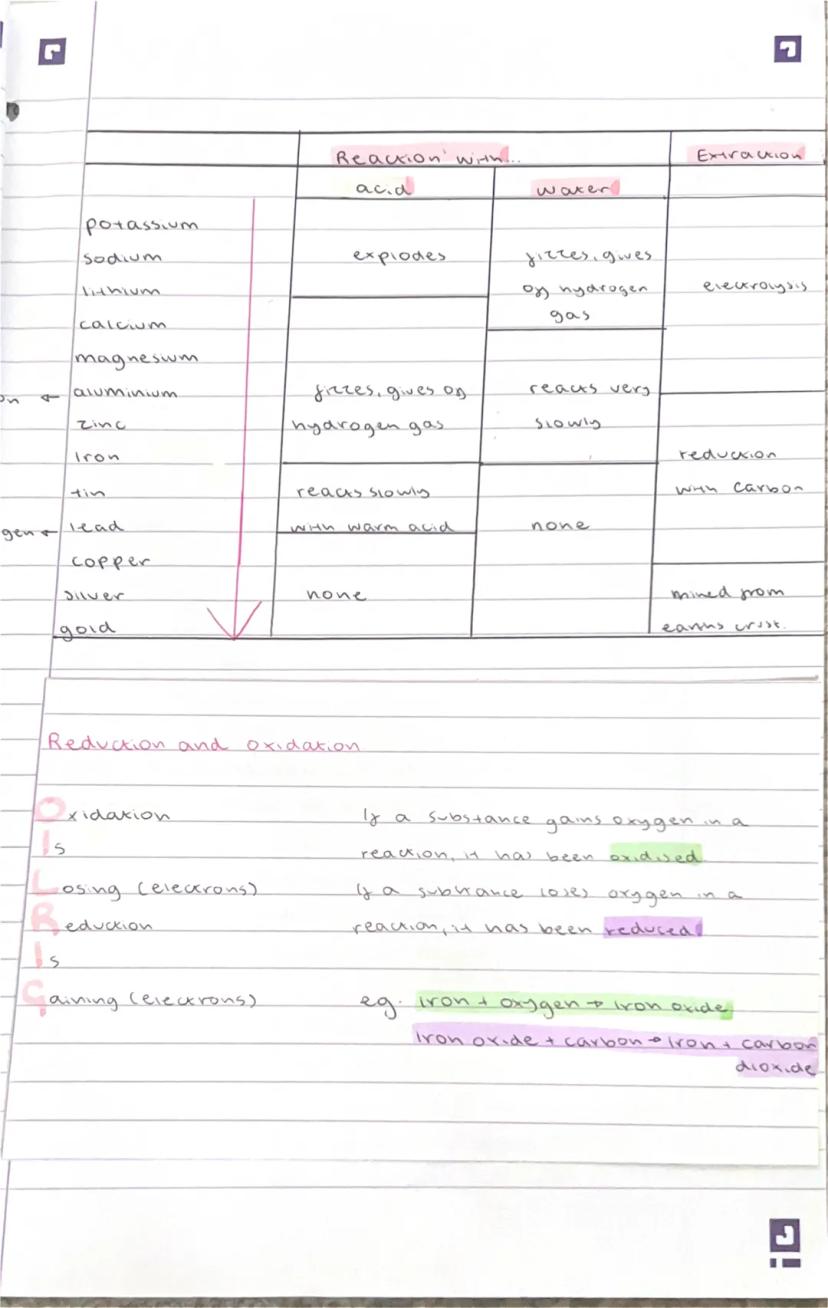 Reaction with... Extraction
acid water
potassium
sodium explodes fizzes, gives
lithium off hydrogen electrolysis
calcium gas
magnesium
on ← aluminium fizzes, gives off reacts very
zinc hydrogen gas slowly
iron reduction
tin reacts slowly with carbon
gen ← lead with warm acid none
copper
silver none mined from
gold earths crust.
Reduction and oxidation
Oxidation If a substance gains oxygen in a
Is reaction, it has been oxidised
Losing (electrons) If a substance loses oxygen in a
Reduction reaction, it has been reduced
Is
Gaining (electrons) eg. iron + oxygen → iron oxide
iron oxide + carbon → iron + carbon
dioxide